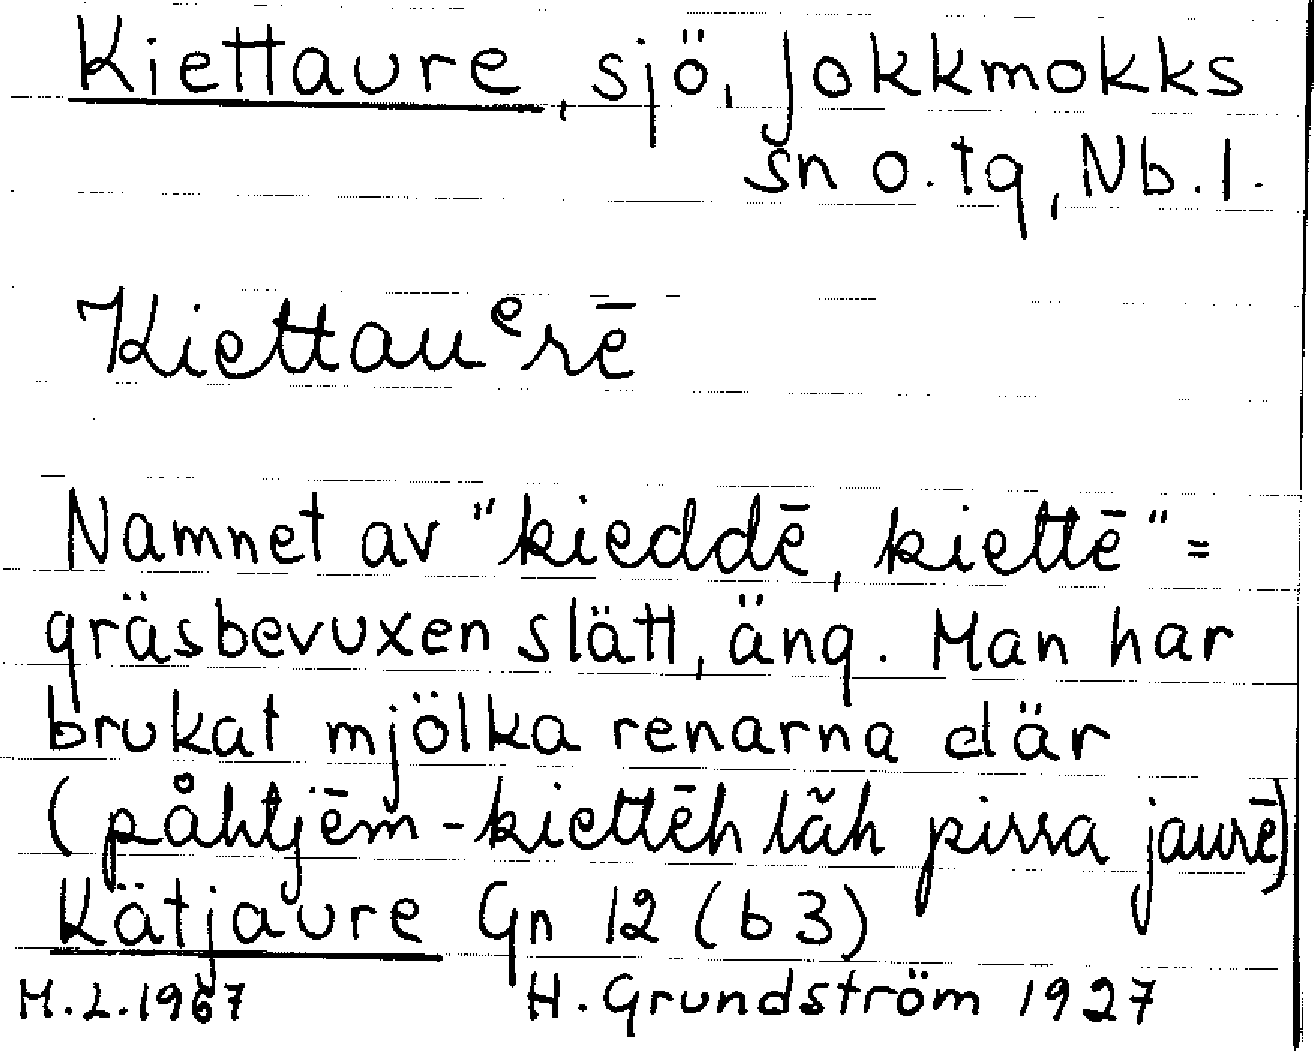 Kiettaure, sjö, Jokkmokks
sn o. tg, Nb. l.
Kiettauᵉrē
Namnet av "kieddē, kiettē" =
gräsbevuxen slätt, äng. Man har
brukat mjölka renarna där
(påhtjēm-kiettēh lãh pirra jaurē)
Kätjaure Gn 12 (b3)
M.L. 1967 H. Grundström 1927